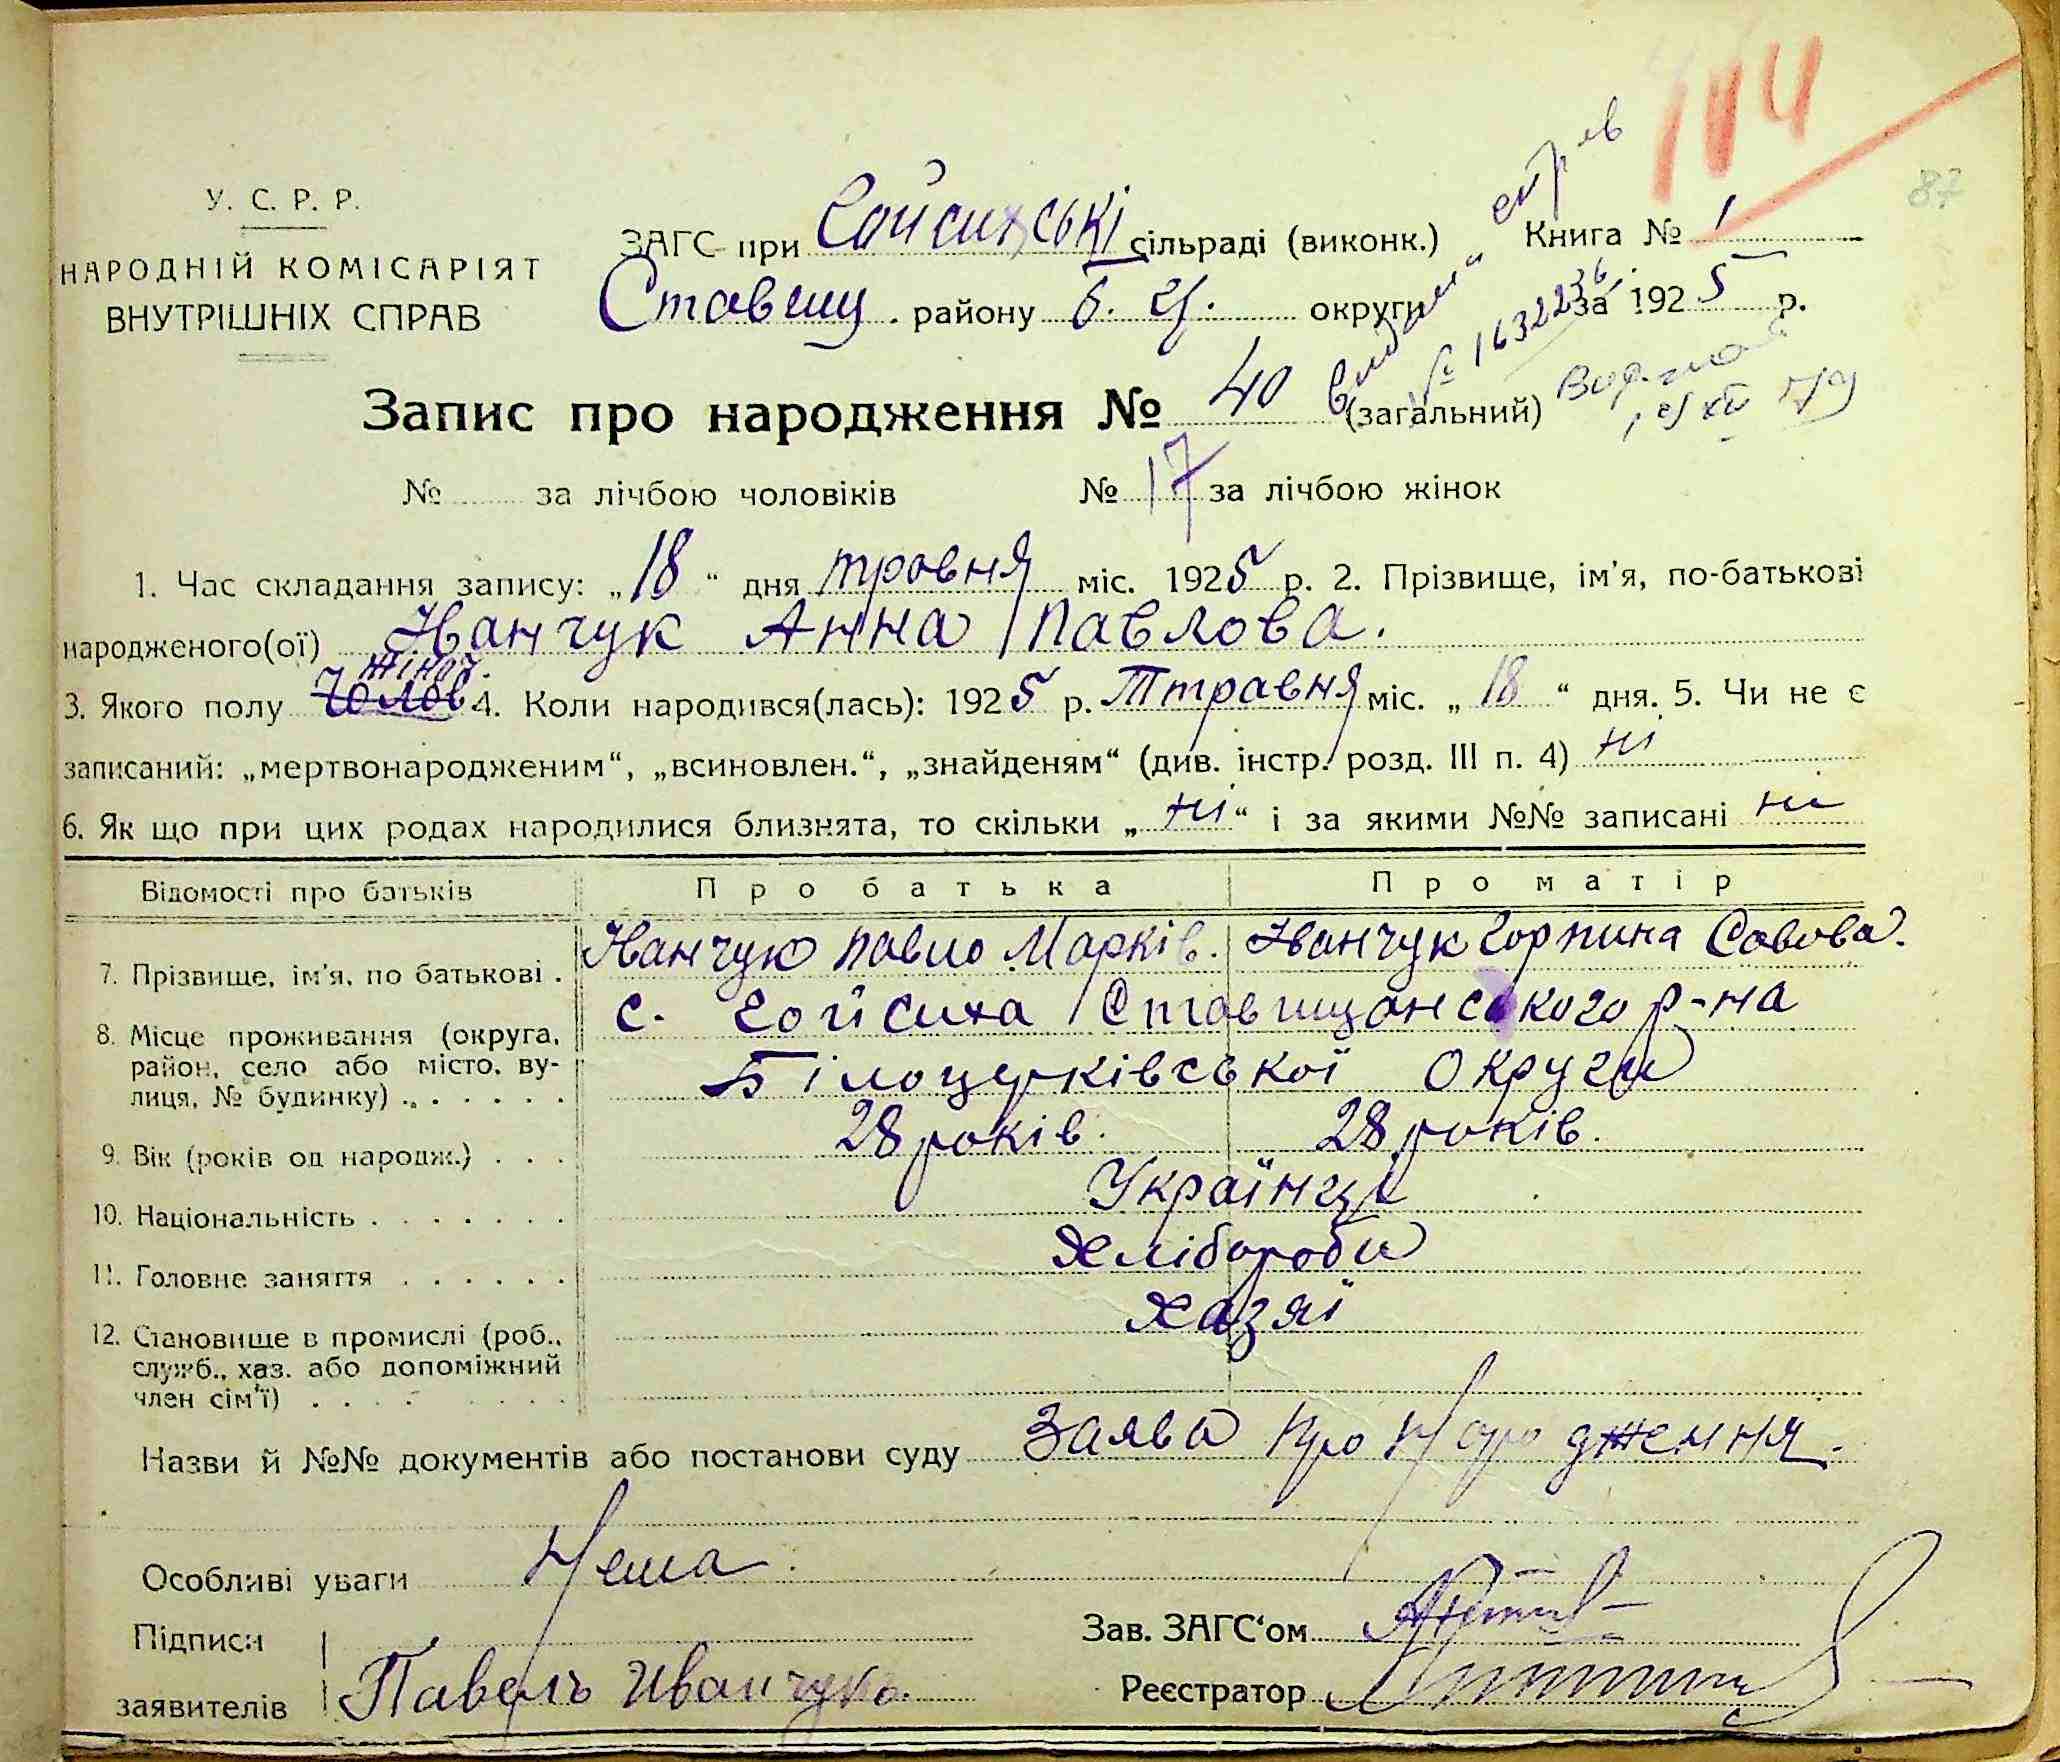 144
87
У. С. Р. Р.
НАРОДНІЙ КОМІСАРІЯТ
ВНУТРІШНІХ СПРАВ
ЗАГС при Гойсихські сільраді (виконк.) Книга № 1
Ставищ. району Б. Ц. округи за 1925 р.
№ 1632236
Запис про народження № 40 (загальний)
№ за лічбою чоловіків № 17 за лічбою жінок
1. Час складання запису: „18“ дня травня міс. 1925 р. 2. Прізвище, ім'я, по-батькові
народженого(ої) Іванчук Анна Павлова.
жіноч.
3. Якого полу Чолов 4. Коли народився(лась): 1925 р. Травня міс. „18“ дня. 5. Чи не є
записаний: „мертвонародженим“, „всиновлен.“, „знайденям“ (див. інстр. розд. III п. 4) ні
6. Як що при цих родах народилися близнята, то скільки „ні“ і за якими №№ записані ні
Відомості про батьків Про батька Про матір
7. Прізвище, ім'я, по батькові . Іванчук Павло Марків. Іванчук Горпина Савова.
8. Місце проживання (округа, с. Гойсиха Ставищанського р-на
район, село або місто, ву- Білоцерківської Округи
лиця, № будинку) . . . . . .
9. Вік (років од народж.) . . . 28 років. 28 років.
10. Національність . . . . . . . Українці
11. Головне заняття . . . . . . Хлібороби
12. Становище в промислі (роб., Хазяї
служб., хаз. або допоміжний
член сім'ї) . . . .
Назви й №№ документів або постанови суду Заява про Народження.
Особливі уваги Нема.
Підписи Зав. ЗАГС'ом
заявителів Павель Иванчука. Реєстратор